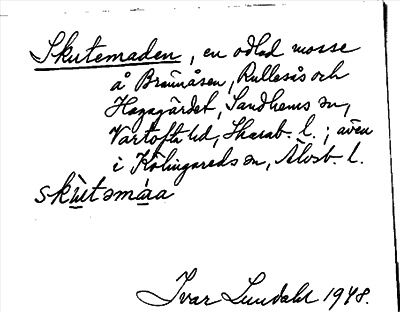 Skutemaden, en odlad mosse
å Brunnåsen, Rullesås och
Hagagärdet, Sandhems sn,
Vartofta hd, Skarab. l.; även
i Kölingareds sn, Älvsb. l.
Ivar Lundahl 1948.